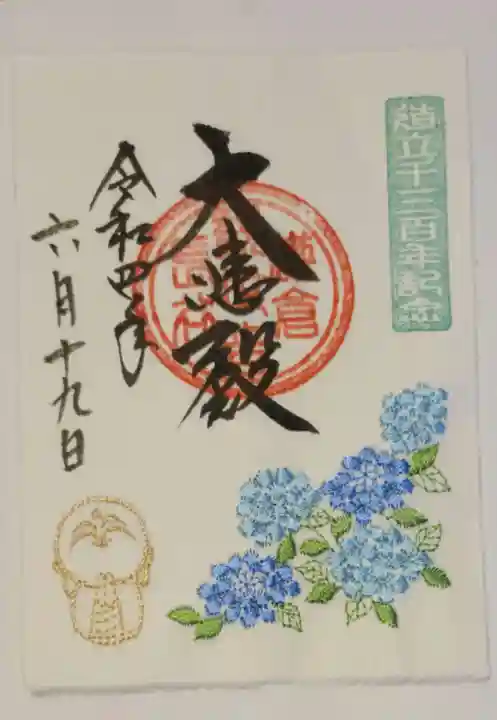 造立千三百年記念
大悲殿
鎌倉
令和四年
六月十九日